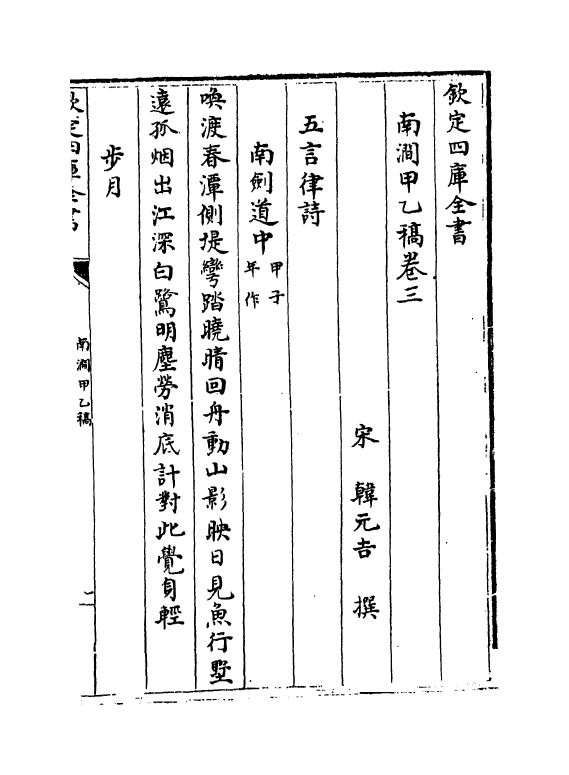 欽定四庫全書
南澗甲乙稿卷三
宋 韓元吉 撰
五言律詩
南劍道中甲子年作
喚渡春潭側堤彎踏曉晴回舟動山影映日見魚行墅
遠孤烟出江深白鷺明塵勞消底計對此覺身輕
步月
欽定四庫全書
南澗甲乙稿
一